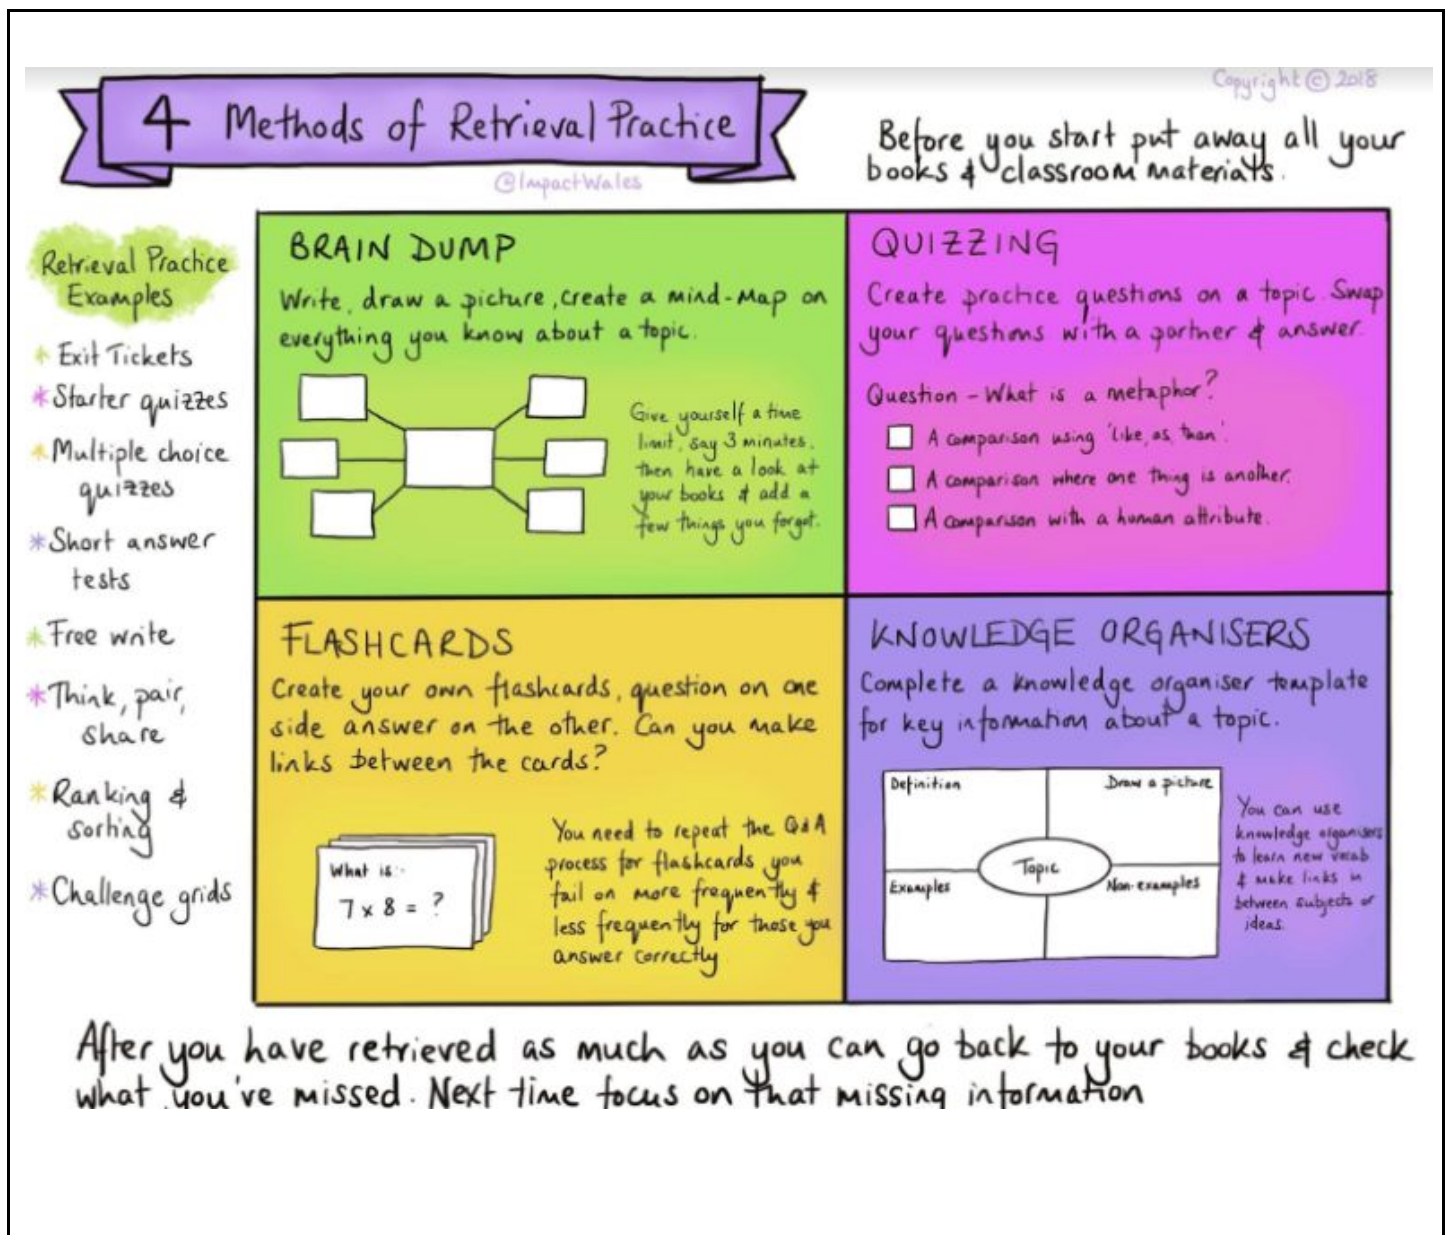 Copyright © 2018
4 Methods of Retrieval Practice
@ImpactWales
Before you start put away all your
books & classroom materials.
Retrieval Practice
Examples
* Exit Tickets
* Starter quizzes
* Multiple choice
quizzes
* Short answer
tests
* Free write
* Think, pair,
share
* Ranking &
sorting
* Challenge grids
BRAIN DUMP
Write, draw a picture, create a mind-map on
everything you know about a topic.
Give yourself a time
limit, say 3 minutes,
then have a look at
your books & add a
few things you forgot.
QUIZZING
Create practice questions on a topic. Swap
your questions with a partner & answer.
Question - What is a metaphor?
A comparison using 'like, as, than'.
A comparison where one thing is another.
A comparison with a human attribute.
FLASHCARDS
Create your own flashcards, question on one
side answer on the other. Can you make
links between the cards?
What is..
7 x 8 = ?
You need to repeat the Q&A
process for flashcards you
fail on more frequently &
less frequently for those you
answer correctly
KNOWLEDGE ORGANISERS
Complete a knowledge organiser template
for key information about a topic.
Definition
Draw a picture
Topic
Examples
Non-examples
You can use
knowledge organisers
to learn new vocab
& make links in
between subjects or
ideas.
After you have retrieved as much as you can go back to your books & check
what you've missed. Next time focus on that missing information